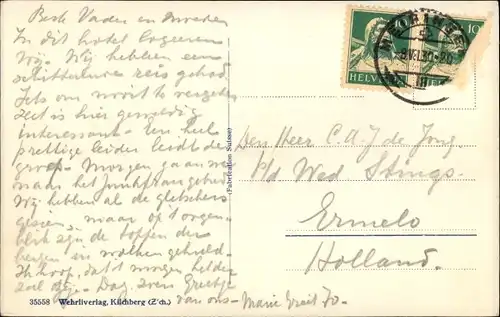 Beste Vader en Moeder
In dit hotel logeeren
Wij. Wij hebben een
schitterende reis gehad.
Iets om nooit te vergeten
zeit is hier geweldig
interessant. Een heel
prettige leider leidt de
groep. Morgen gaan we
naar het Jungfraugebied
Wij hebben al de gletschers
gezien, maar op 't oogen-
blik zijn de toppen der
bergen in wolken gehuld.
Ik hoop, dat 't morgen helder
zal zijn. Dag, zoen Greetje
van ons - Marie
35558 Wehrliverlag, Kilchberg (Zch.)
(Fabrication Suisse)
HELVETIA
10
Den Heer C. A. J. de Jong.
p/a Wed Stings-
Ermelo
Holland.